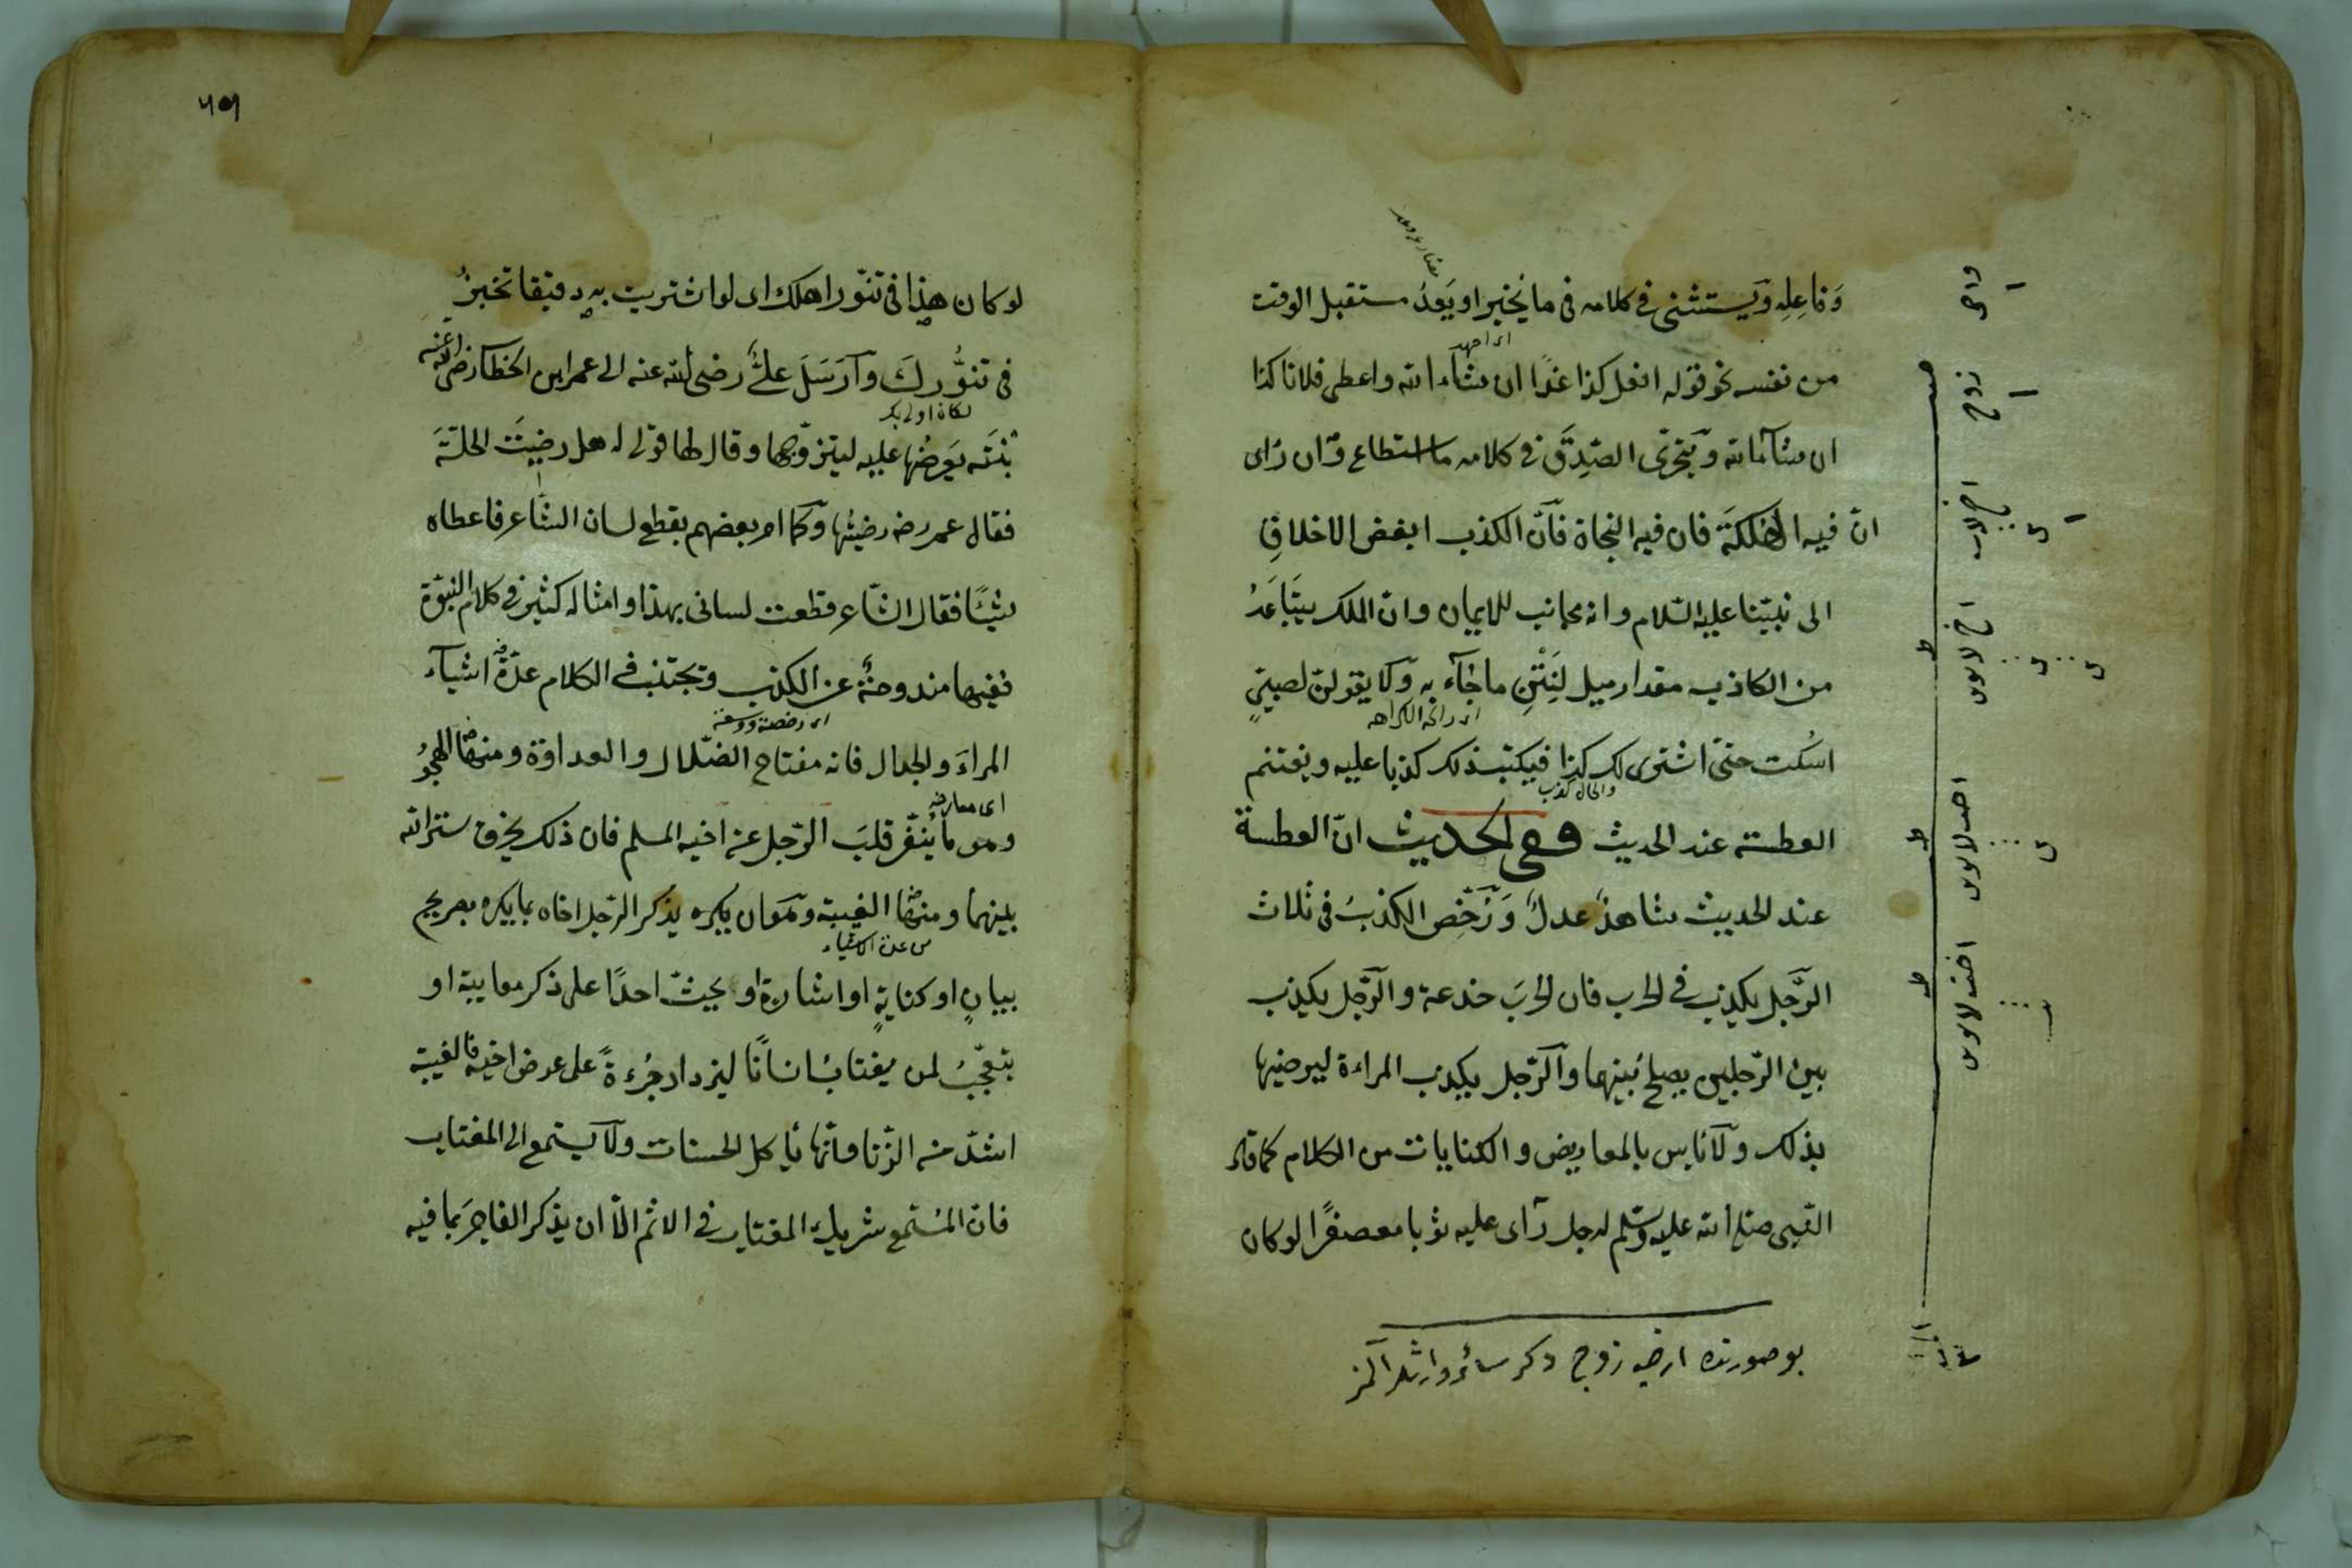 وَفاعِلِه وَيستثنى فى كلامه فى ما يخبر او يَعِدُ مستقبل الوقت
من نفسه نحو قوله افعل كذا غدًا ان شآء الله واعطى فلانا كذا
ان شآء الله ويتحرّى الصِّدقَ فى كلامه ما استطاع وان رَاى
انّ فيه الهلكةَ فان فيه النجاة فانّ الكذب ابغض الاخلاقِ
الى نبيّنا عليه السّلام وانه مجانب للايمان وان الملك يتباعدُ
من الكاذب مقدار ميل لِنَتْنِ ما جآء به ولا يقولنّ لصبيّ
اى رائحة الكراهه
اسكت حتى اشترى لك كذا فيكتب ذلك كذبا عليه ويغتنم
والحال كذب
العطسة عند الحديث وفى الحديث انّ العطسة
عند الحديث شاهدٌ عدلٌ وَرُخّص الكذبُ فى ثلاث
الرّجل يكذب فى الحرب فان الحربَ خدعة والرّجل يكذب
بين الرّجلين يصلح بينهما والرّجل يكذب المراءة ليرضيها
بذلك ولا بأس بالمعاريض والكنايات من الكلام كما قال
النّبى صلى الله عليه وسلم لرجل رَاى عليه ثوبا معصفرًا لو كان
بو صورتده زوج دكر سائر وارثلر آلمز
زوج
اخ لاب
اخ لابوين
اخت لابوين
اخت لابوين
لو كان هذا فى تنّور اهلك اى لو اشتريت به دقيقا تخبزُ
فى تنّورك وارسَلَ علىٌّ رضى الله عنه الى عمر ابن الخطاب رضى الله عنه
بنتَه يَعرضُها عليه ليتزوّجها وقال لها قولى له هل رضيتَ الحلّةَ
فقال عمر رضه رضيتُها وكما امر بعضهم بقطع لسان الشّاعر فاعطاه
شيئًا فقال الشّاعر قطعت لسانى بهذا وامثاله كثير فى كلام النبوّة
ففيها مندوحةٌ عن الكذب وتجتنب فى الكلام عدّة اشيآء
اى رخصة ووسعة
المراءَ والجدال فانه مفتاح الضّلال والعداوة ومنها الهجوُ
وهو ما يُنفّر قلبَ الرّجل عن اخيه المسلم فان ذلك يخرق ستر الله
بينهما ومنها الغيبة وهو ان يذكر الرّجل اخاه بما يكره بصريح
من عدة الاشياء
بيانٍ او كنايةٍ او اشارة او يحثّ احدًا على ذكر معايبه او
يتعجّبُ لمن يغتابُ انسانًا ليزداد جُرءةً على عرض اخيه فالغيبة
اشدّ من الزّنا وانّها تأكل الحسنات ولا يستمع الى المغتاب
فانّ المُستمع شريك المغتاب فى الاثم الّا ان يذكر الفاجرَ بما فيه